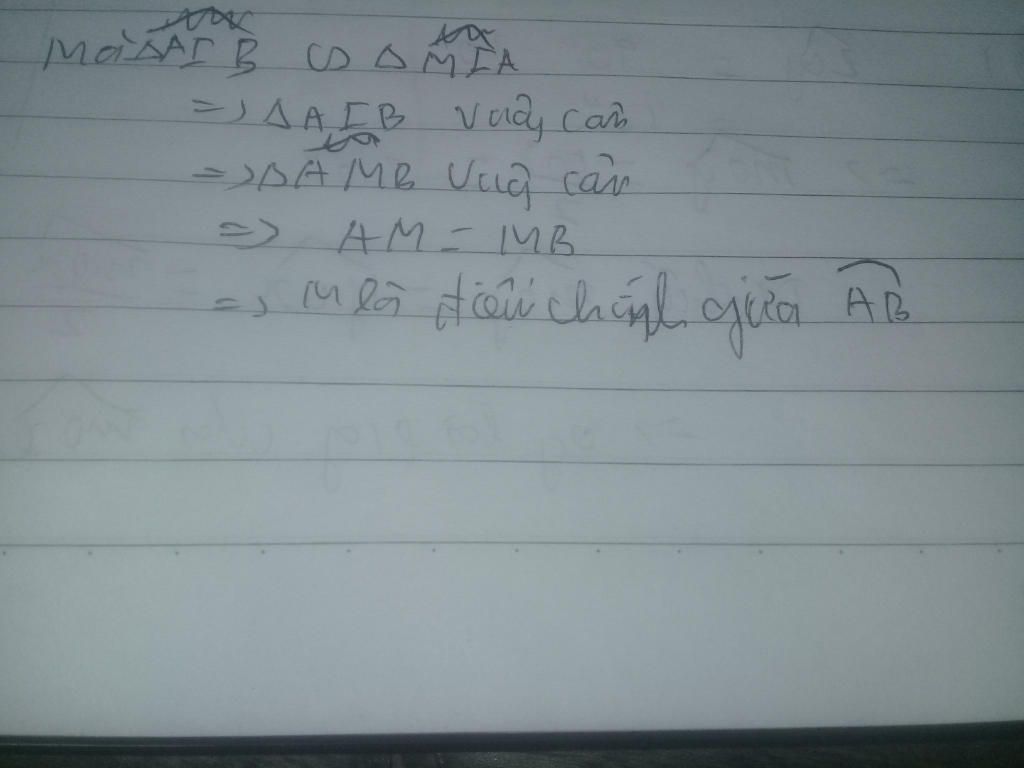 Mà ΔAIB ∽ ΔMIA
=> ΔAIB vuông cân
=> ΔAMB vuông cân
=> AM = MB
=> M là điểm chính giữa AB